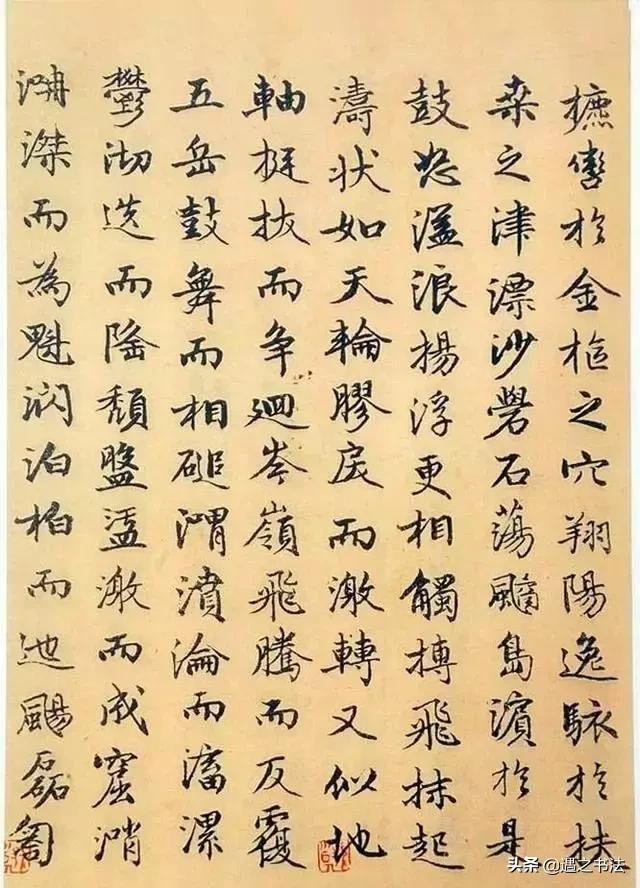 摭轡於金樞之穴翔陽逸駭於扶
桑之津漂沙礐石蕩䬍島濱於是
鼓怒溢浪揚浮更相觸搏飛沫起
濤状如天輪膠戾而激轉又似地
軸挺拔而争廻岑嶺飛騰而反覆
五岳鼓舞而相磓渭濆淪而滀漯
鬱沏迭而隆頹盤盓激而成窟
滐而為魁㴸泊柏而迆颺磊匒
头条 @遇之书法